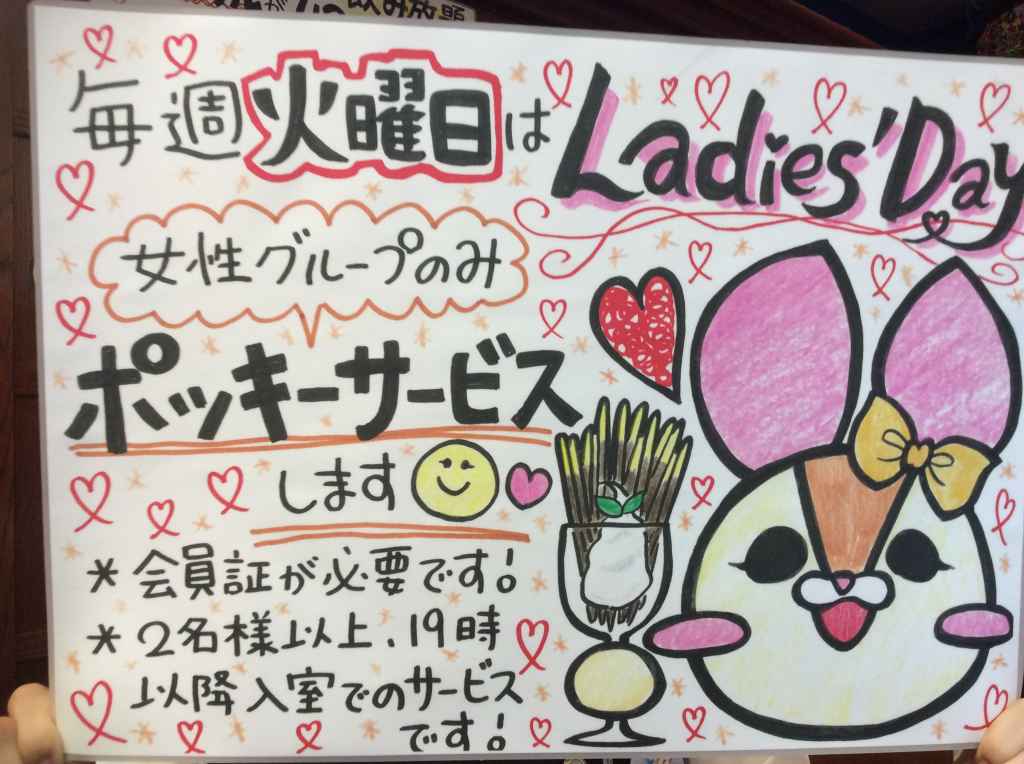 飲み放題
毎週火曜日は Ladies' Day
女性グループのみ
ポッキーサービス
します
* 会員証が必要です!
* 2名様以上、19時
以降入室でのサービス
です!